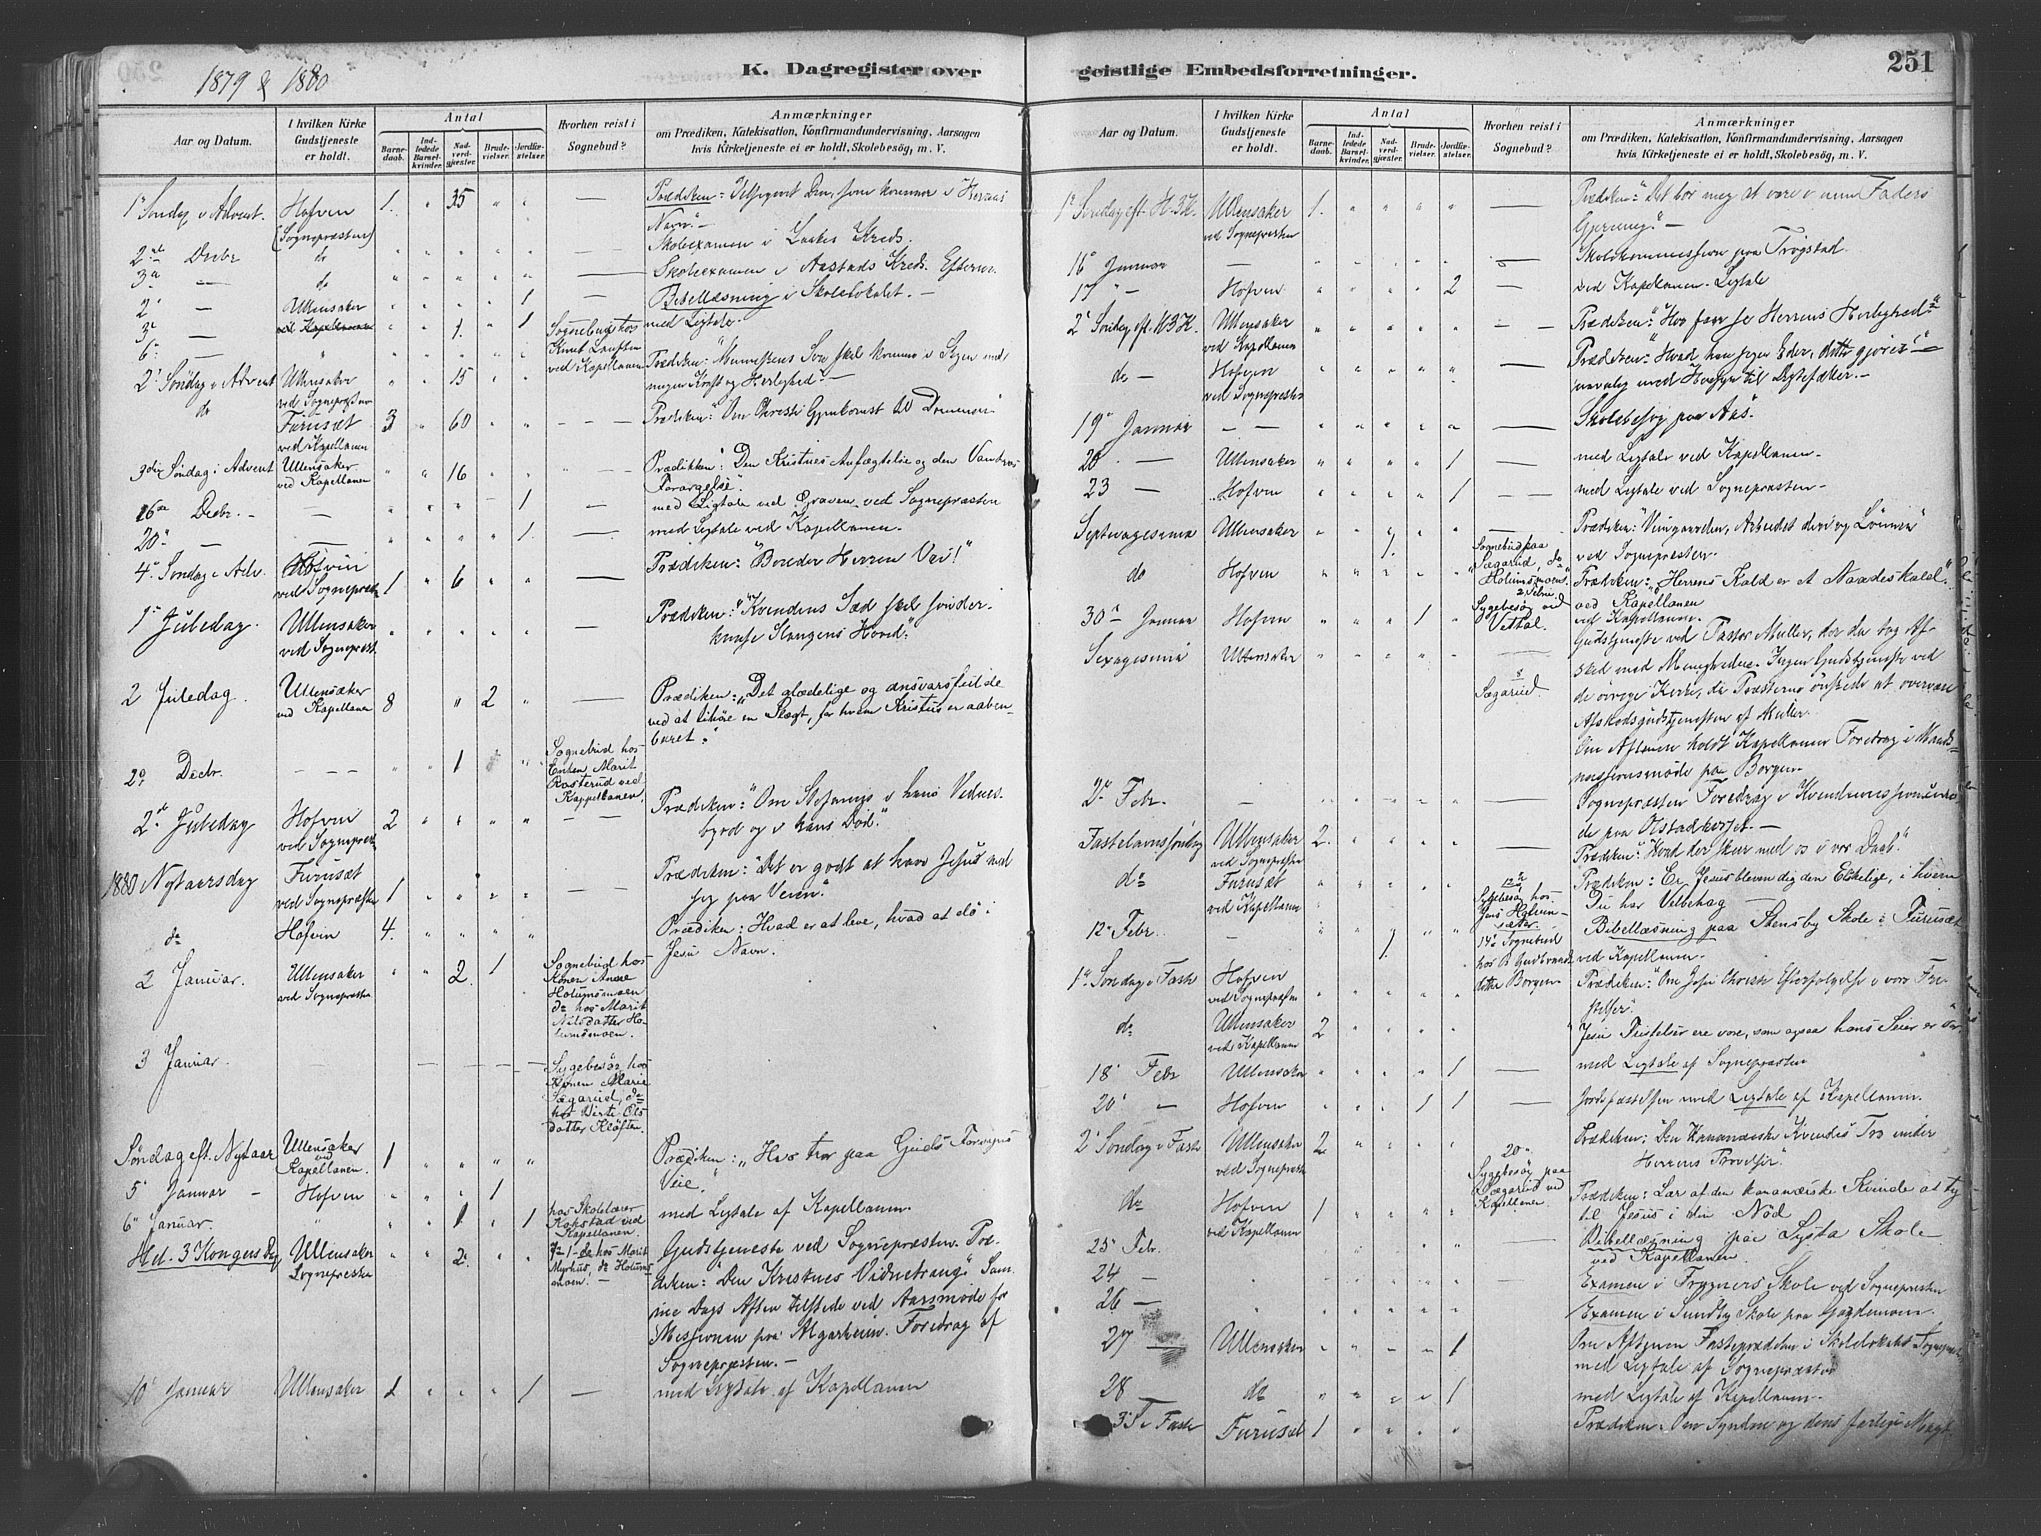 251
1879 & 1880
K. Dagregister over
geistlige Embedsforretninger.
Aar og Datum.
I hvilken Kirke Gudstjeneste er holdt.
Antal
Barnedaab.
Indledede Barselkvinder.
Nadverdgjæster.
Brudevielser.
Jordfæstelser.
Hvorhen reist i Sognebud?
Anmærkninger
om Prædiken, Katekisation, Konfirmandundervisning, Aarsagen
hvis Kirketjeneste ei er holdt, Skolebesøg, m. V.
1ˢ Søndag i Advent. Hofvin 1. " 35 " " — Prædiken: Velsignet Den, som kommer i Herrens
(Sognepræsten) Navn. —
2den Decbr do Skoleexamen i Laake Kreds.
3a — do Skoleexamen i Aastads Kreds. Efterm.
2' — Ullensaker 1 — Bibellæsning i Skolelokalet. —
3' — ved Kapellanen 1. " 1 Sognebud hos med Ligtale.
6' — Knut
ved Kapellanen Prædiken: Menneskens Søn skal komme i Skyen med
2' Søndag i Advent Ullensaker " " 15 megen Kraft og Herlighed. —
ved Sognepræsten
do Furuset 3 " 60 — — — Prædiken: Om Christi Gjenkomst til Dommen
ved Kapellanen
3die Søndag i Advent Ullensaker " " 16 — Prædikken: Den Kristnes Anfægtelse og den Vantros
ved Kapellanen Forargelse.
16de Decbr. — — 1 — med Ligtale ved Graven ved Sognepræsten
20' — — 1. — med Ligtale ved Kapellanen.
4' Søndag i Adv. Hofvin 1 " 6 — Prædiken: "Bereder Herren Vei!"
ved Sognepræst
1ˢ Juledag. Ullensaker — Prædiken: "Kvindens Sæd skal sønder-
ved Sognepræst. knuse Slangens Hoved.
2 Juledag. Ullensaker 8 " 2 — Prædiken: "Det glædelige og ansvarsfulde
ved Kapellanen ved at tilhøre en Slægt, for hvem Kristus er aaben-
baret."
2den Decbr. — — — 1 Sognebud hos
Enken Marit
Rosterud ved
Kappellanen.
2den Juledag Hofvin 2 — — Prædiken: "Om Stefanus i hans Vidnes-
ved Sognepræst byrd og i hans Død."
1880 Nytaarsdag Furusæt 1 — Prædiken: "Det er godt at have Jesus med
ved Sognepræsten sig paa Veien."
do Hofvin 4. Prædiken: Hvad er at leve, hvad at dø i
Jesu Navn.
2 Januar. Ullensaker " " 2. 1 Sognebud hos
ved Sognepræsten Konen Anne
Holumsmoen
do hos Marit
Nilsdatter Ho-
lumsmoen.
3 Januar. — — — Sygebesøg hos
Konen Marie
Sægarud, do
hos Virte Ols
datter Kløften.
Søndag eft. Nytaar Ullensaker 1 Prædiken: "Hvo tror paa Guds Forsyns
ved Kapellanen. Veie."
5' Januar — Hofvin 1
6' Januar. " 1 " 1 hos Skolelærer med Ligtale af Kapellanen.
ved
Kapellanen.
Hel. 3 Kongers Dag Ullensaker 2. do hos Marit Gudstjeneste ved Sognepræsten. Præ-
Sognepræsten do Holums- diken: "Den Kristnes Vidnetrang" Sam-
moen. — me Dags Aften tilstede ved Aarsmøde for
Missionen paa Algarheim. Foredrag af
Sognepræsten. —
10' Januar Ullensaker 1 med Ligtale af Kapellanen
Aar og Datum.
I hvilken Kirke Gudstjeneste er holdt.
Antal
Barnedaab.
Indledede Barselkvinder.
Nadverdgjæster.
Brudevielser.
Jordfæstelser.
Hvorhen reist i Sognebud?
Anmærkninger
om Prædiken, Katekisation, Konfirmandundervisning, Aarsagen
hvis Kirketjeneste ei er holdt, Skolebesøg, m. V.
1ˢ Søndag eft. H.3K. Ullensaker 1. — Prædiken: "Det bør meg at være i min Faders
ved Sognepræsten Gjerning". —
16' Januar — — Skolekommission paa Trøgstad.
17 " — Hofvin 2 — ved Kapellanen. Ligtale
2' Søndag eft. H3K. Ullensaker — Prædiken: "Hvo faar se Herrens Herlighed"
ved Kapellanen
do — Hofvin — Prædiken: "Hvad han siger Eder, dette gjører"
ved Sognepræsten navnlig med Hensyn til Ægtefæker. —
19' Januar — — — Skolebesøg paa Aas.
20 — Ullensaker 1 — med Ligtale ved Kapellanen.
23 — Hofvin 1 — med Ligtale ved Sognepræsten. —
Septuagesima Ullensaker 1. — Prædiken: "Vingaarden, Arbeidet deri og Lønnen"
Sognebud paa ved Sognepræsten.
do Hofvin Sægarud, do
Holumsmoens Prædiken: "Herrens Kald er et Naadeskald."
ved Kapellanen
30' Januar Hofvin 1 Sygebesøg ved ved Kapellanen.
Vestal.
Sexagesima Ullensaker — Gudstjeneste ved Pastor Müller, der da tog Af-
8 sked med Menigheden. Ingen Gudstjeneste ved
Sægarud de øvrige Kirker, da Præsterne ønskede at overvære
Afskedsgudstjenesten af Müller.
Om Aftenen holdt Kapellanen Foredrag i Mands-
missionsmøde paa Borgen.
2' Febr. — — Sognepræsten Foredrag i Kvindemissionsmø-
de paa Olstadkorset. —
Fastelavnssøndag Ullensaker 2. — Prædiken: "Hvad der sker med os i vor Daab".
ved Sognepræsten
do Furusæt 12te Prædiken: Er Jesus bleven dig den Elskelige, i hvem
ved Kapellanen Sygebesøg hos Du har Velbehag —
Jens Holum-
sæter
12' Febr. — 1. 14' Sognebud Bibellæsning paa Stensby Skole i Furuset
ved Kapellanen.
1ˢ Søndag i Faste Hofvin datter Borgen Prædiken: "Om Jesu Christi Efterfølgelse i vore Fri-
ved Sognepræsten stelser."
do Ullensaker 2 Jesu Fristelser ere vore, som ogsaa hans Seier er vor
ved Kapellanen
18' Febr Ullensaker 1 — med Ligtale af Sognepræsten
20' — Hofvin 1 1 — Jordfæstelsen med Ligtale af Kapellanen.
2' Søndag i Faste Ullensaker 2 — Prædiken: "Den Kananæiske Kvindes Tro under
ved Sognepræsten 20' Herrens Prøvelser".
Sygebesøg paa
do Hofvin 1 Sægarud ved Prædiken: Lær af den kananæiske Kvinde at ty
ved Kapellanen Kapellanen til Jesus i din Nød
25' Febr. Bibellæsning paa Lysta Skole
ved Kapellanen
24 — Examen i Trygners Skole ved Sognepræsten
26 — Examen i Sundby Skole paa Gardermoen.
27 — Ullensaker 1 Om Aftenen Fasteprædiken i Skolelokalet Sognepræst
med Ligtale af Sognepræsten
28 do 1 med Ligtale af Kapellanen. —
3' S i Faste Furuset 1 Prædiken: Om Synden og dens farlige Magt